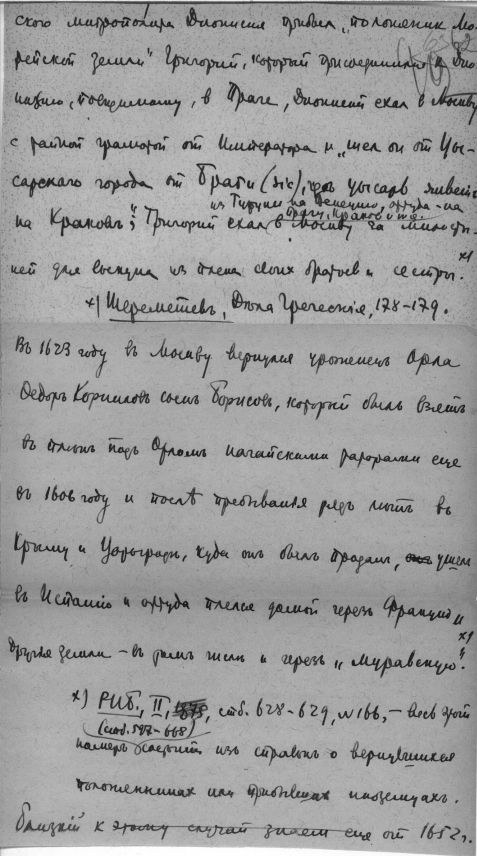 ского митрополита Дионисия привел „полоненик Мо-
рейской земли" Григорий, который присоединился к Дио-
нисию, повидимому, в Праге, Дионисий ехал в Москву
с тайной грамотой от Императора и „шел он от Цы-
сарского города от Браги (sic), где цысарь живет
на Краковъ"; Григорий ехал в Москву за милосты-
из Турции на Венецию, оттуда на
Прагу, Краков и т.д.
ней для выкупа из плена своих братьев и сестры. x)
x) Шереметевъ, Дѣла Греческія, 178-179.
Въ 1623 году въ Москву вернулся уроженецъ Орла
Ѳедоръ Корниловъ сынъ Борисовъ, который былъ взятъ
въ плѣнъ подъ Орломъ нагайскими татарами еще
въ 1606 году и послѣ пребыванія рядъ лѣтъ въ
Крыму и Царьградѣ, куда онъ былъ проданъ, ушел
въ Испанію и оттуда плелся домой черезъ Францію и
другія земли – въ томъ числѣ и черезъ „Муравскую". x)
x) РИБ., II, 1875, стб. 628-629, №166, – весь этот
(стлб. 597-668)
номеръ состоитъ изъ справокъ о вернувшихся
полоненникахъ или прибывшихъ иноземцахъ.
Близкій к этому случай знаем еще от 1652 г.